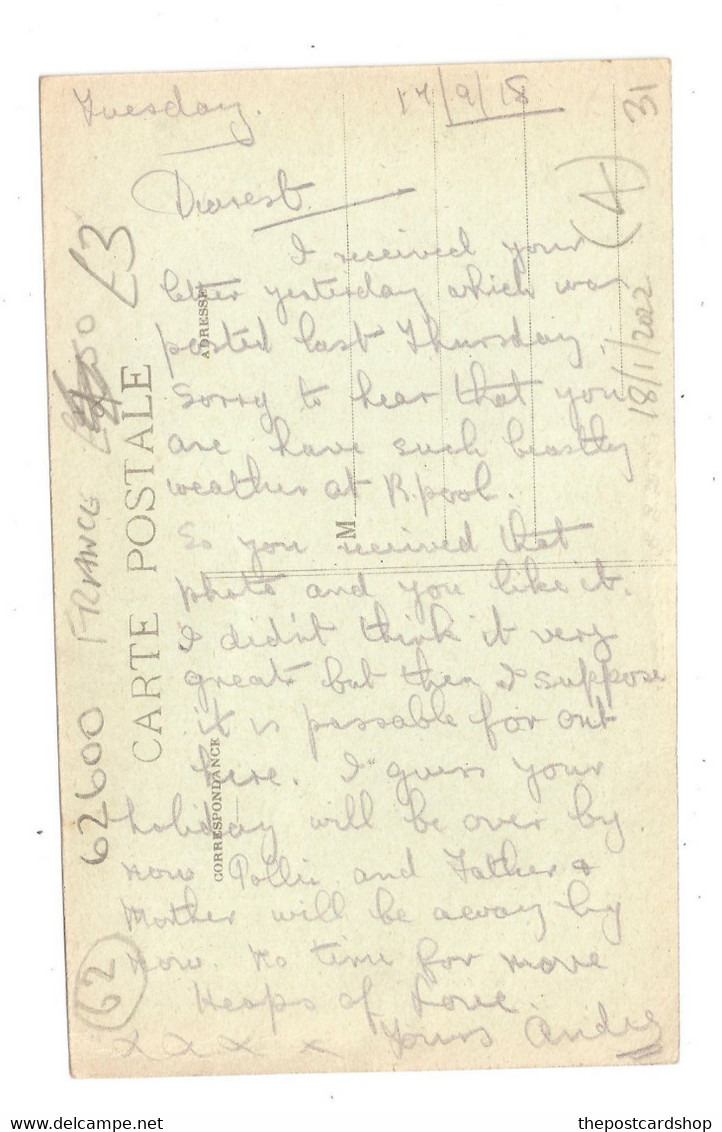 Tuesday. 17/9/18
Dearest
I received your
letter yesterday which was
posted last Thursday.
Sorry to hear that you
are have such beastly
weather at B.pool.
So you received that
photo and you like it.
I didn't think it very
great but then I suppose
it is passable for out
here. I guess your
holiday will be over by
now Pollie and Father &
Mother will be away by
now. No time for more
Heaps of Love.
Yours Andy
x x x x
CARTE POSTALE
CORRESPONDANCE
ADRESSE
M
62600 FRANCE £3
62
31
(A)
18/1/2022
thepostcardshop